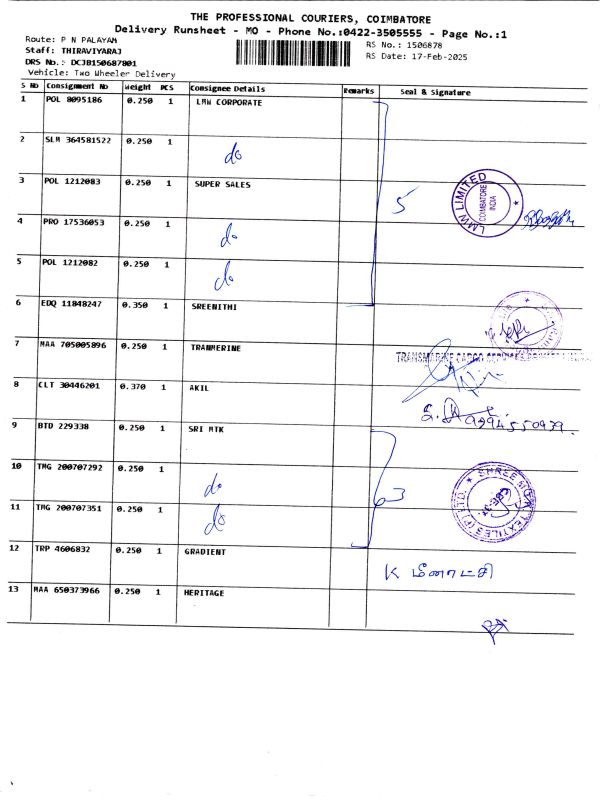 THE PROFESSIONAL COURIERS, COIMBATORE
Delivery Runsheet - MO - Phone No.:0422-3505555 - Page No.:1
Route: P N PALAYAM
Staff: THIRAVIYARAJ
DRS No.: DCJB150687801
Vehicle: Two Wheeler Delivery
RS No.: 1506878
RS Date: 17-Feb-2025
S No Consignment No Weight PCS Consignee Details Remarks Seal & Signature
1 POL 8095186 0.250 1 LMW CORPORATE
2 SLM 364581522 0.250 1 do
3 POL 1212083 0.250 1 SUPER SALES 5
LMW LIMITED COIMBATORE INDIA
4 PRO 17536053 0.250 1 do
5 POL 1212082 0.250 1 do
6 EDQ 11848247 0.350 1 SREENITHI
7 MAA 705005896 0.250 1 TRANMERINE
TRANSMARINE CARGO SERVICES
8 CLT 30446201 0.370 1 AKIL
9 BTD 229338 0.250 1 SRI MTK
10 TMG 200707292 0.250 1 do 3
SHREE TEXTILES (P) LTD.
11 TMG 200707351 0.250 1 do
12 TRP 4606832 0.250 1 GRADIENT K மீனாட்சி
13 MAA 650373966 0.250 1 HERITAGE